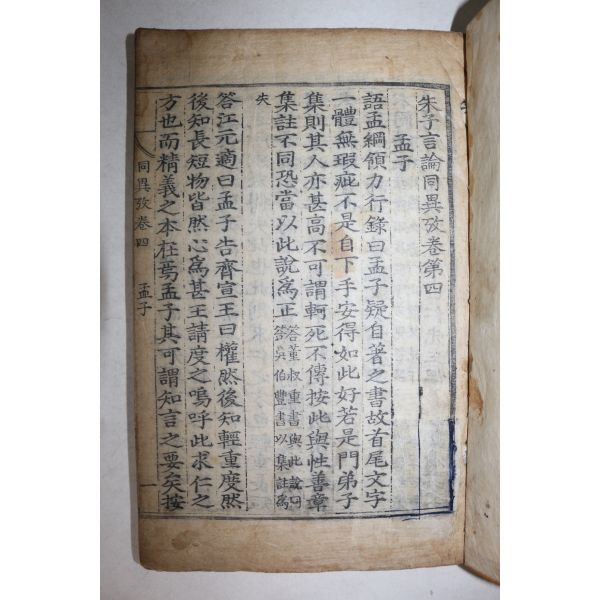 朱子言論同異攷卷第四
孟子
語孟綱領力行錄曰孟子疑自著之書故首尾文字
一體無瑕疵不是自下手安得如此好若是門弟子
集則其人亦甚高不可謂軻死不傳按此與性善章
集註不同恐當以此說爲正答董叔重書與此說同
答吳伯豐書以集註爲
失
答江元適曰孟子告齊宣王曰權然後知輕重度然
後知長短物皆然心爲甚王請度之嗚呼此求仁之
方也而精義之本在焉孟子其可謂知言之要矣按
同異攷卷四 孟子 一